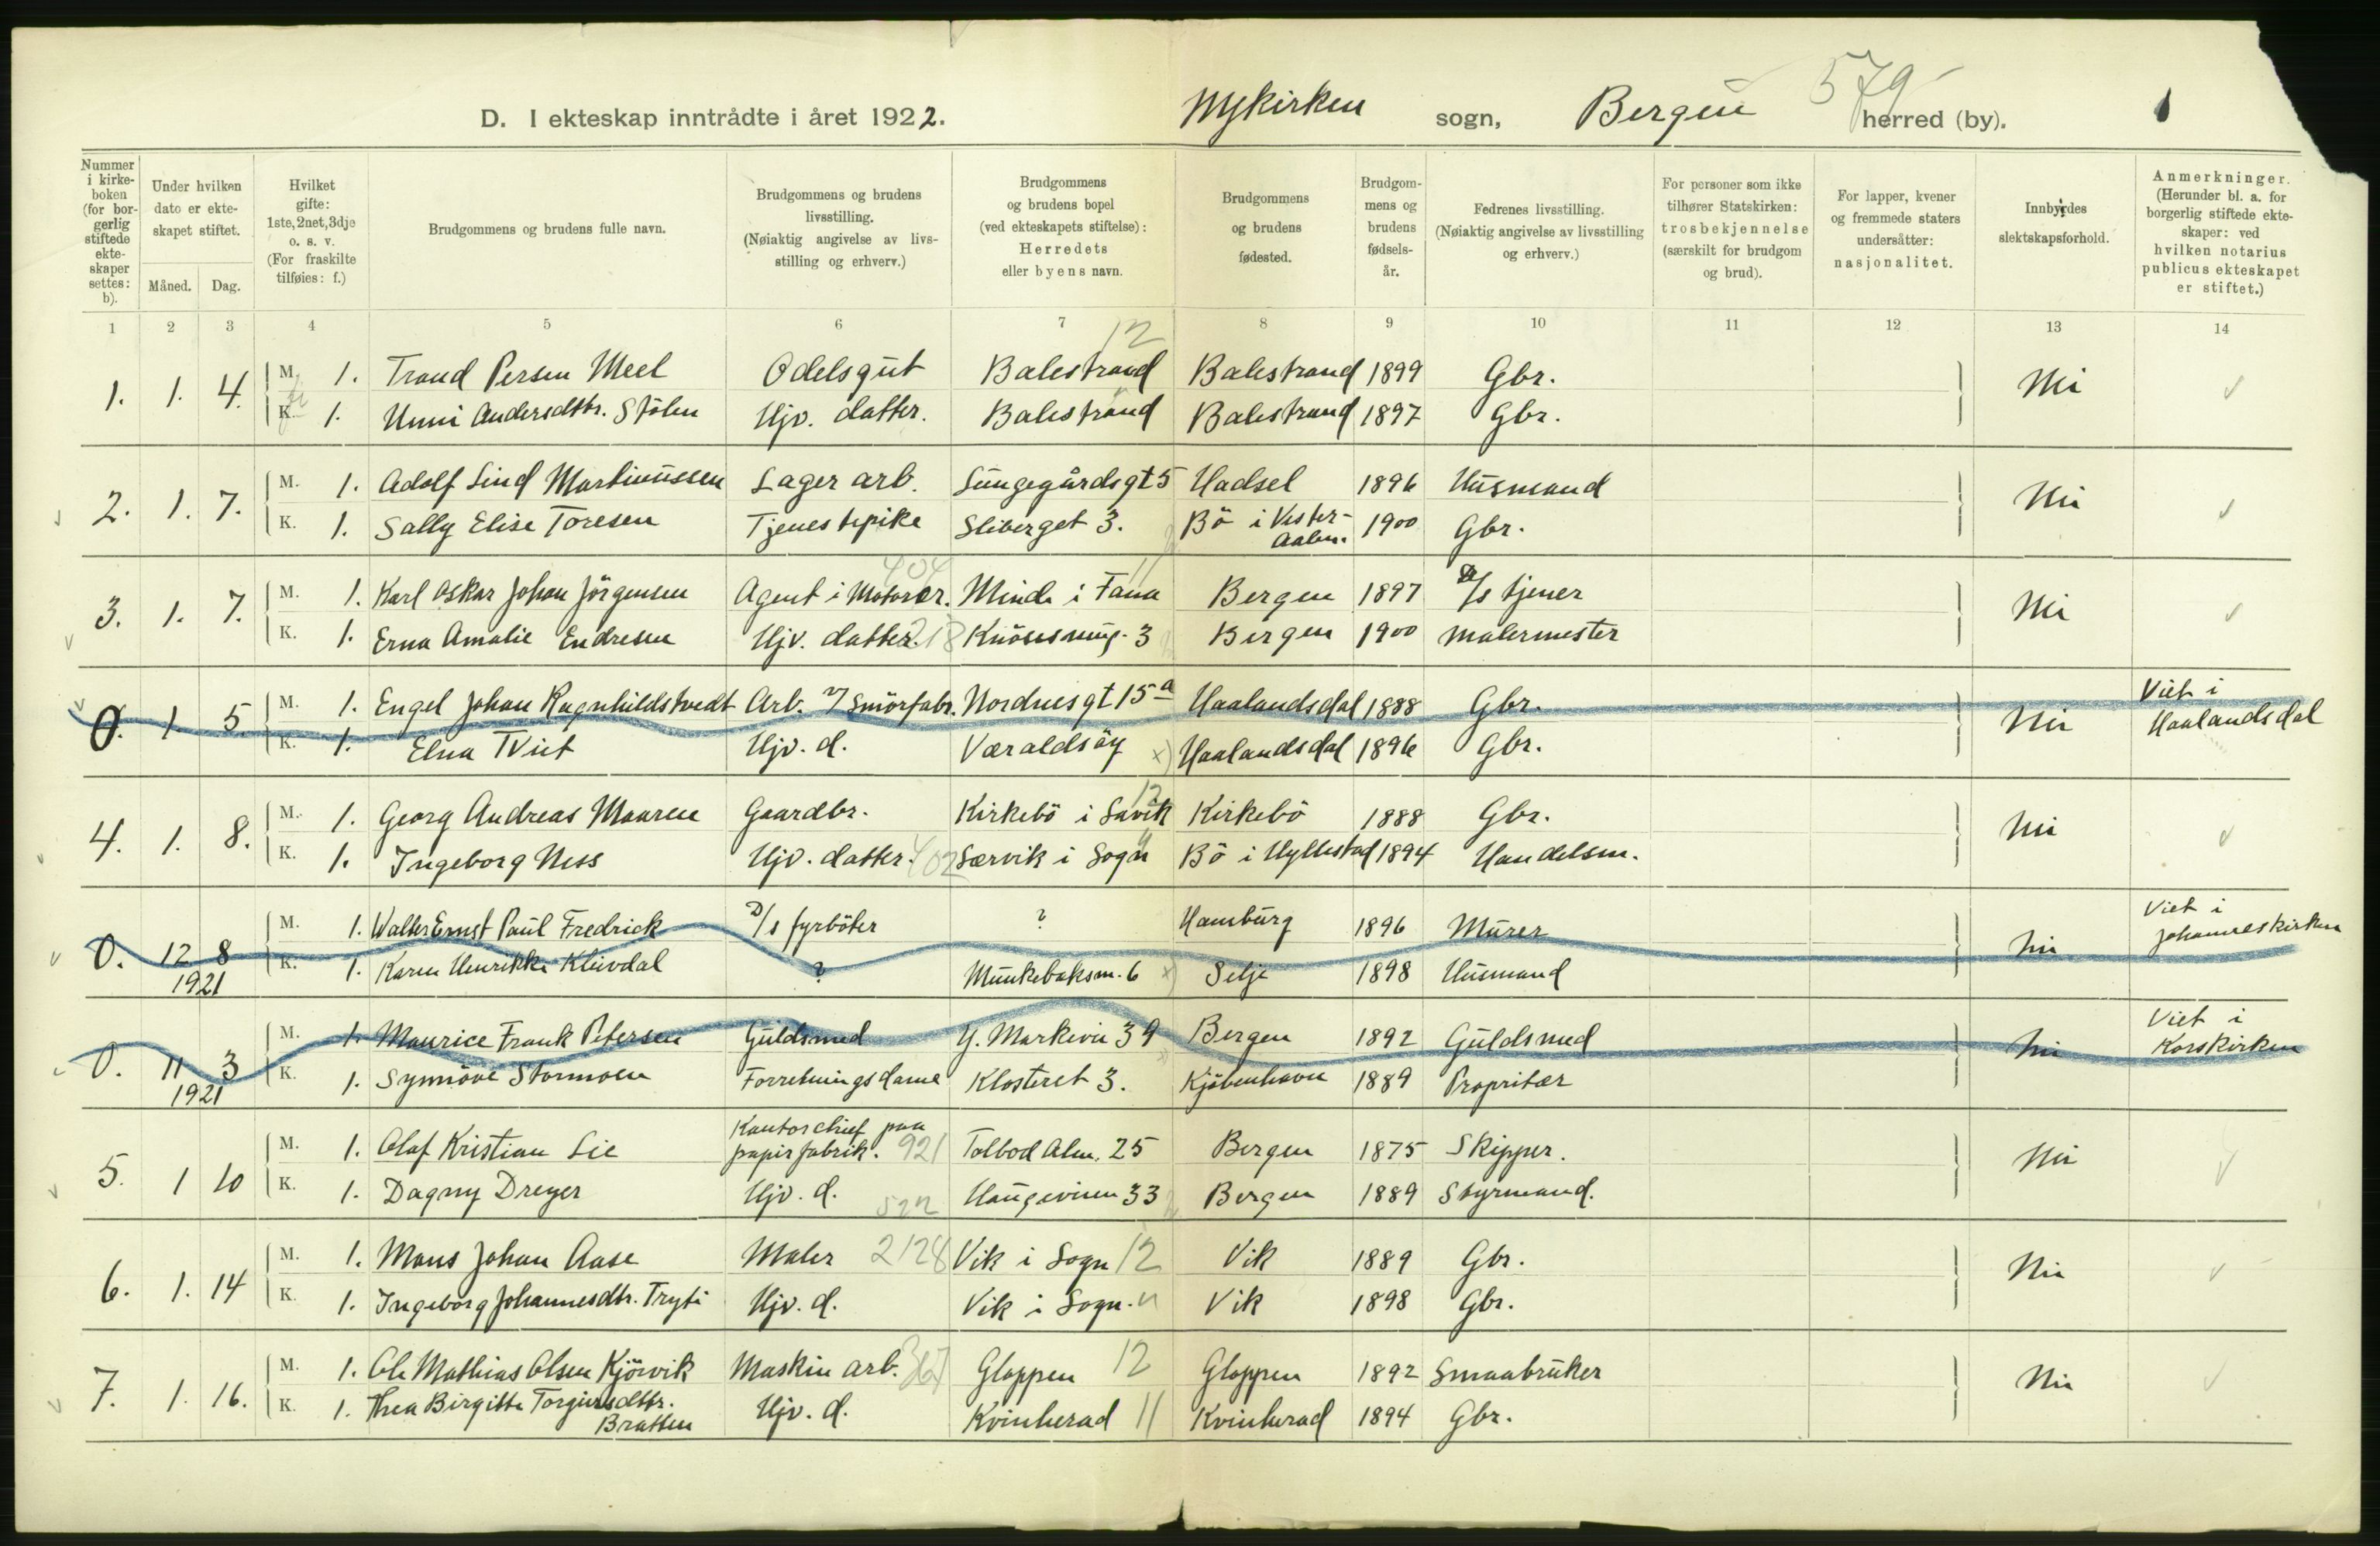 D. I ekteskap inntrådte i året 1922. Nykirken sogn, Bergen herred (by). 579
Nummer i kirkeboken (for borgerlig stiftede ekteskaper settes: b).
Under hvilken dato er ekteskapet stiftet.
Måned. Dag.
Hvilket gifte: 1ste, 2net, 3dje o. s. v. (For fraskilte tilføies: f.)
Brudgommens og brudens fulle navn.
Brudgommens og brudens livsstilling. (Nøiaktig angivelse av livsstilling og erhverv.)
Brudgommens og brudens bopel (ved ekteskapets stiftelse): Herredets eller byens navn.
Brudgommens og brudens fødested.
Brudgommens og brudens fødselsår.
Fedrenes livsstilling. (Nøiaktig angivelse av livsstilling og erhverv.)
For personer som ikke tilhører Statskirken: trosbekjennelse (særskilt for brudgom og brud).
For lapper, kvener og fremmede staters undersåtter: nasjonalitet.
Innbyrdes slektskapsforhold.
Anmerkninger. (Herunder bl. a. for borgerlig stiftede ekteskaper: ved hvilken notarius publicus ekteskapet er stiftet.)
1 2 3 4 5 6 7 8 9 10 11 12 13 14
1. 1. 4. M. 1. Trond Persen Meel Odelsgut Balestrand 12 Balestrand 1899 Gbr. Nei
K. 1. Unni Andersdttr. Stölen Hjv. datter. Balestrand Balestrand 1897 Gbr.
2. 1. 7. M. 1. Adolf Lind Martinussen Lager arb. Lungegårdsgt 5 Hadsel 1896 Husmand Nei
K. 1. Sally Elise Toresen Tjenestepike Sliberget 3. Bö i Vester-Aalen. 1900 Gbr.
3. 1. 7. M. 1. Karl Oskar Johan Jörgensen Agent i Motorer. 404 Minde i Fana 11 Bergen 1897 D/s tjener Nei
K. 1. Erna Amalie Endresen Hjv. datter. 218 Knösesmug. 3 Bergen 1900 Malermester
0. 1. 5. M. 1. Engel Johan Ragnhildstvedt Arb. v/ Smörfabr. Nordnesgt 15 a Haalandsdal 1888 Gbr. Nei Viet i Haalandsdal
K. 1. Elna Tveit Hjv. d. Væraldsöy x) Haalandsdal 1896 Gbr.
4. 1. 8. M. 1. Georg Andreas Maaren Gaardbr. Kirkebö i Lavik 12 Kirkebö 1888 Gbr. Nei
K. 1. Ingeborg Ness Hjv. datter. 402 Særvik i Sogn Bö i Hyllestad 1894 Handelsm.
0. 12 8 1921 M. 1. Walter Ernst Paul Fredrick D/s fyrböter ? Hamburg 1896 Murer Nei Viet i Johanneskirken
K. 1. Karen Henrikke Kleivdal ? Munkebaksm. 6 x) Selje 1898 Husmand
0. 11 3 1921 M. 1. Maurice Frank Petersen Guldsmed Y. Markevei 39 Bergen 1892 Guldsmed Nei Viet i Korskirken
K. 1. Synnöve Stormoen Forretningsdame Klosteret 3. Kjöbenhavn 1889 Propritær
5. 1 10 M. 1. Olaf Kristian Lie Kontorchief paa papirfabrik. 921 Tolbod Alm. 25 Bergen 1875 Skipper. Nei
K. 1. Dagny Dreyer Hjv. d. 522 Haugeveien 33 Bergen 1889 Styrmand.
6. 1. 14 M. 1. Mons Johan Aase Maler 2128 Vik i Sogn 12 Vik 1889 Gbr. Nei
K. 1. Ingeborg Johannesdtr. Tryti Hjv. d. Vik i Sogn. " Vik 1898 Gbr.
7. 1. 16. M. 1. Ole Mathias Olsen Kjörvik Maskin arb. Gloppen 12 Gloppen 1892 Smaabruker Nei
K. 1. Thea Birgitte Torgeirsdttr. Bratten Hjv. d. Kvinherad 11 Kvinherad 1894 Gbr.